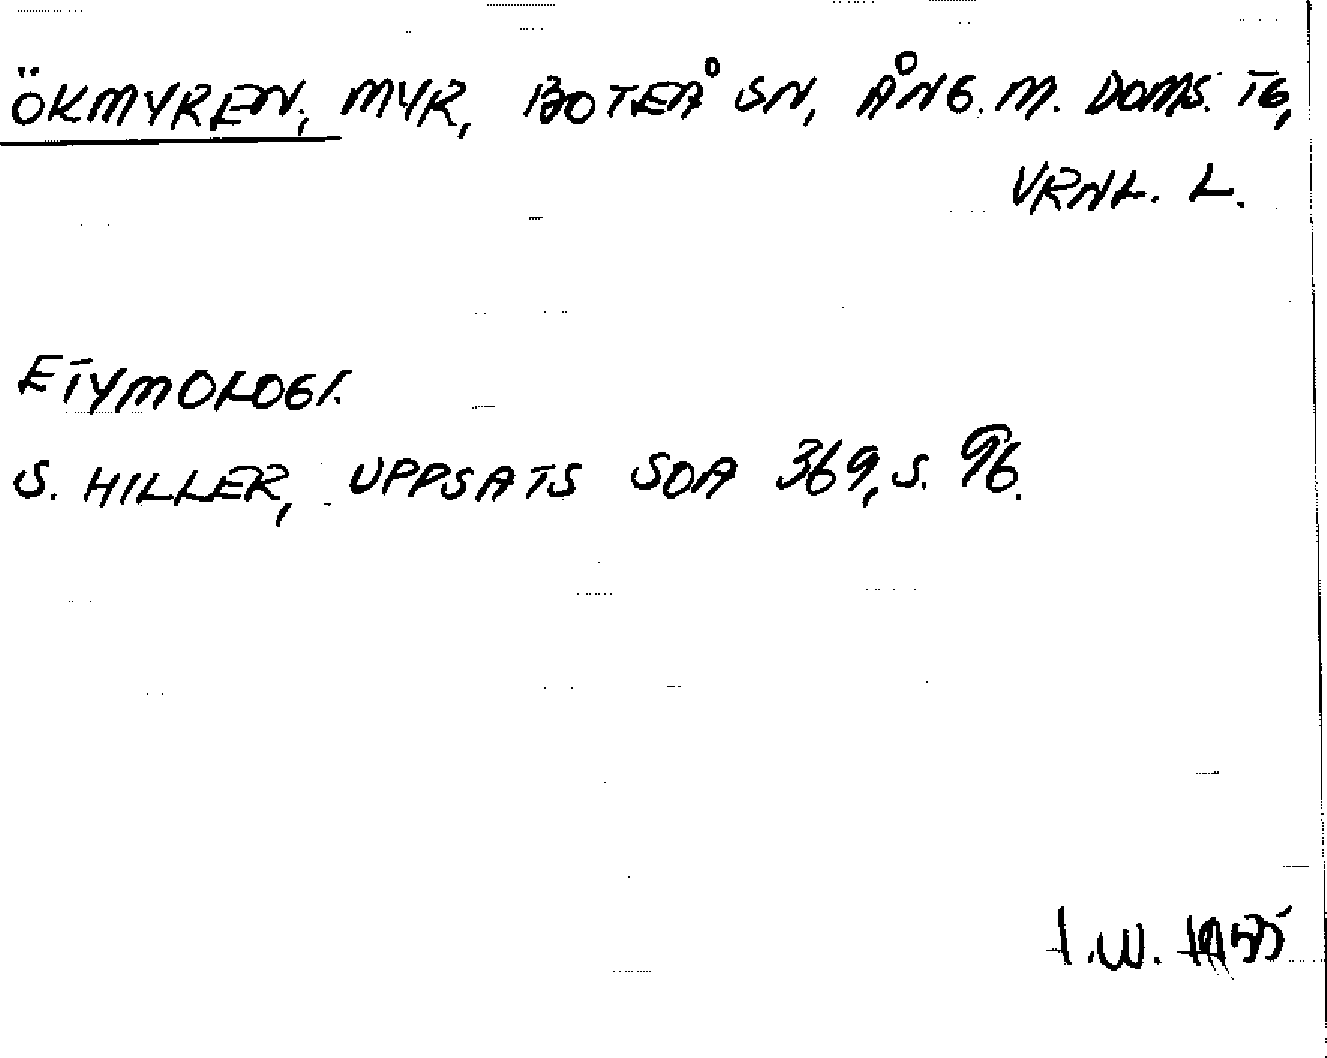 ÖKMYREN, MYR, BOTEÅ SN, ÅNG. M. DOMS. TG,
VRNL. L.
ETYMOLOGI.
S. HILLER, UPPSATS SOA 369, S. 96.
I.W.